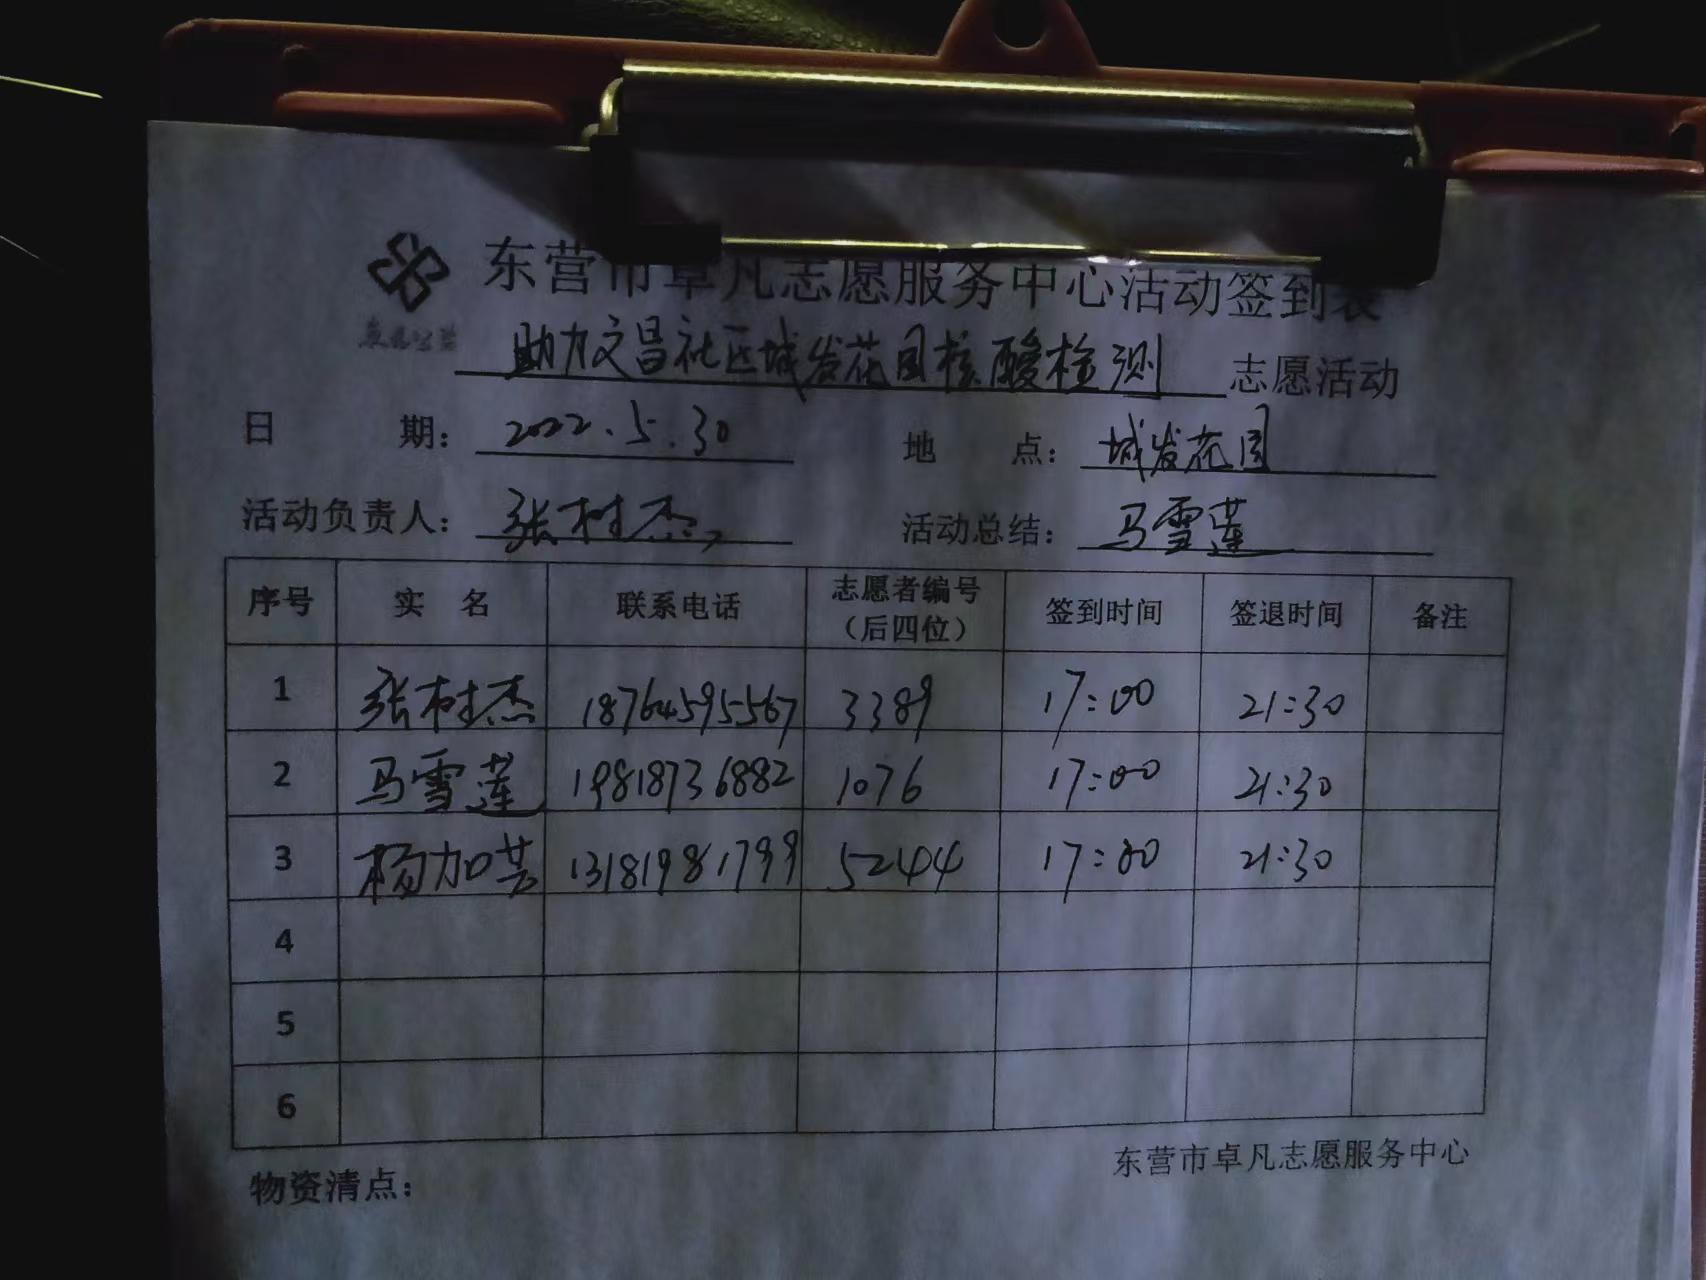 东营市卓凡志愿服务中心活动签到表
助力文昌社区城发花园核酸检测 志愿活动
日 期： 2022.5.30 地 点： 城发花园
活动负责人： 张树杰 活动总结： 马雪莲
序号 实 名 联系电话 志愿者编号（后四位） 签到时间 签退时间 备注
1 张树杰 18764595567 3389 17:00 21:30
2 马雪莲 19818736882 1076 17:00 21:30
3 杨加芸 13181981799 5244 17:00 21:30
4
5
6
东营市卓凡志愿服务中心
物资清点：